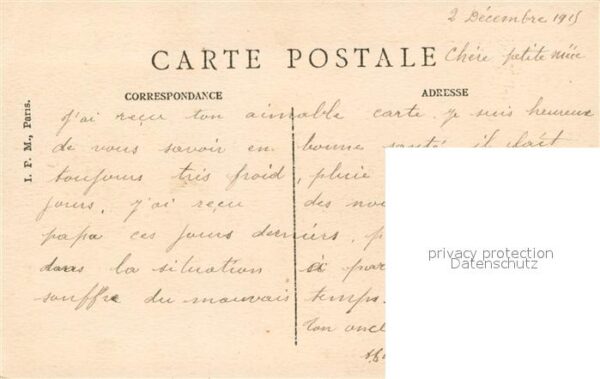 2 Décembre 1915
CARTE POSTALE
Chère petite nièce
CORRESPONDANCE
ADRESSE
I. P. M., Paris.
J'ai reçu ton aimable carte. Je suis heureux
de vous savoir en bonne santé. il fait
toujours très froid, pluie
jours. J'ai reçu des
papa ces jours derniers,
dans la situation
souffre du mauvais temps.
Ton
privacy protection
Datenschutz